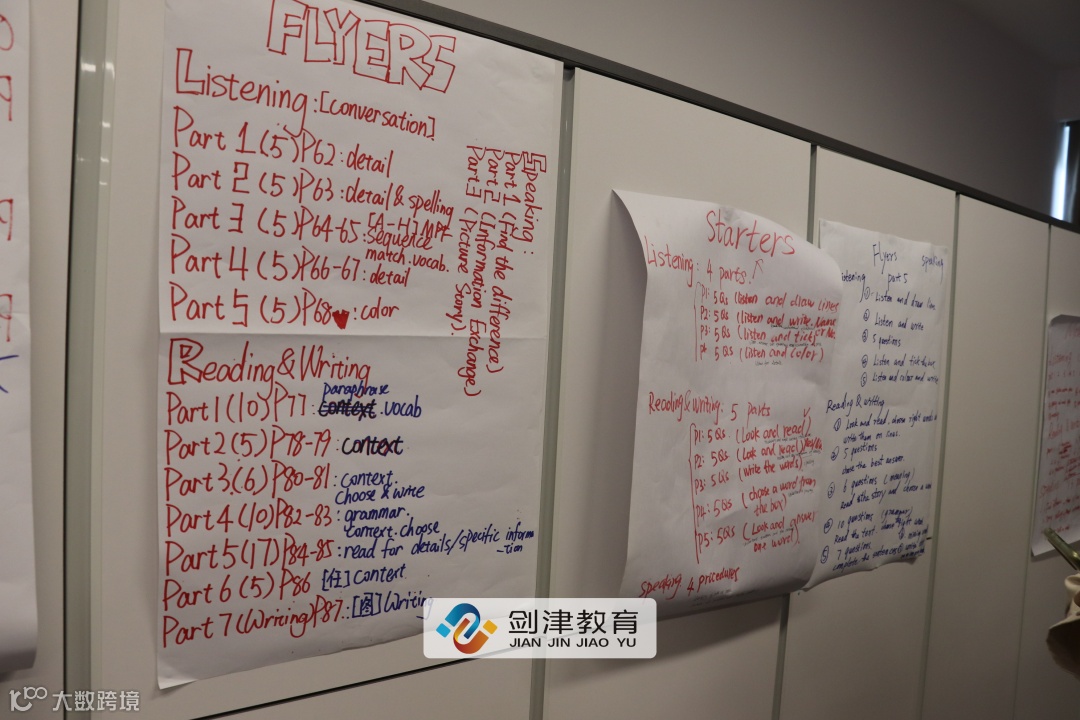 FLYERS
Listening:[conversation]
Part 1 (5) P62: detail
Part 2 (5) P63: detail & spelling
[A-H]
Part 3 (5) P64-65: sequence
match.vocab.
Part 4 (5) P66-67: detail
Part 5 (5) P68: color
Speaking:
Part 1 (Find the difference)
Part 2 (Information Exchange)
Part 3 (Picture Story).
Reading&Writing
paraphrase
Part 1 (10) P77: context.vocab
Part 2 (5) P78-79: context
Part 3 (6) P80-81: context.
choose & write
Part 4 (10) P82-83: grammar.
context.choose
Part 5 (17) P84-85: read for details/specific informa
-tion
Part 6 (5) P86 [任] context
Part 7 (Wriring P87: [图] Writing
Starters
Listening: 4 parts.
P1: 5 Qs (listen and draw lines
P2: 5 Qs (listen and write
P3: 5 Qs (listen and tick
P4: 5 Qs (listen and color)
Reading & writing: 5 parts
P1: 5 Qs (Look and read)
P2: 5 Qs (Look and read)
P3: 5 (write the words)
P4: 5 Qs (choose a word from
the box)
P5: 5 Qs (Look and
one word)
Speaking 4 procedures
Flyers speaking
Listening part 5
① Listen and draw line
② Listen and write
③ 5 questions
④ Listen and tick the box
⑤ Listen and colour and write
Reading & writing
① Look and read, choose right words
write them on lines.
② 5 questions
choose the best answer.
③ 6 questions
Read the story and choose a
10 questions
Read the text choose right
7 questions
complete the
剑津教育
JIAN JIN JIAO YU
大数跨境